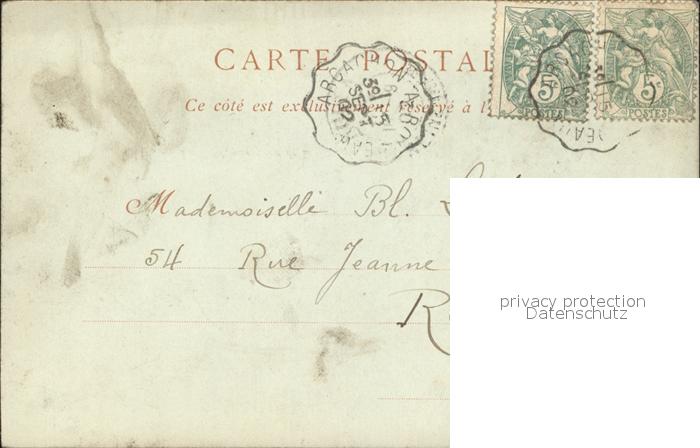 CARTE POSTAL
Ce côté est exclusivement réservé à l'
5c 5c
POSTES POSTES
Mademoiselle Bl.
54 Rue Jeanne
privacy protection
Datenschutz